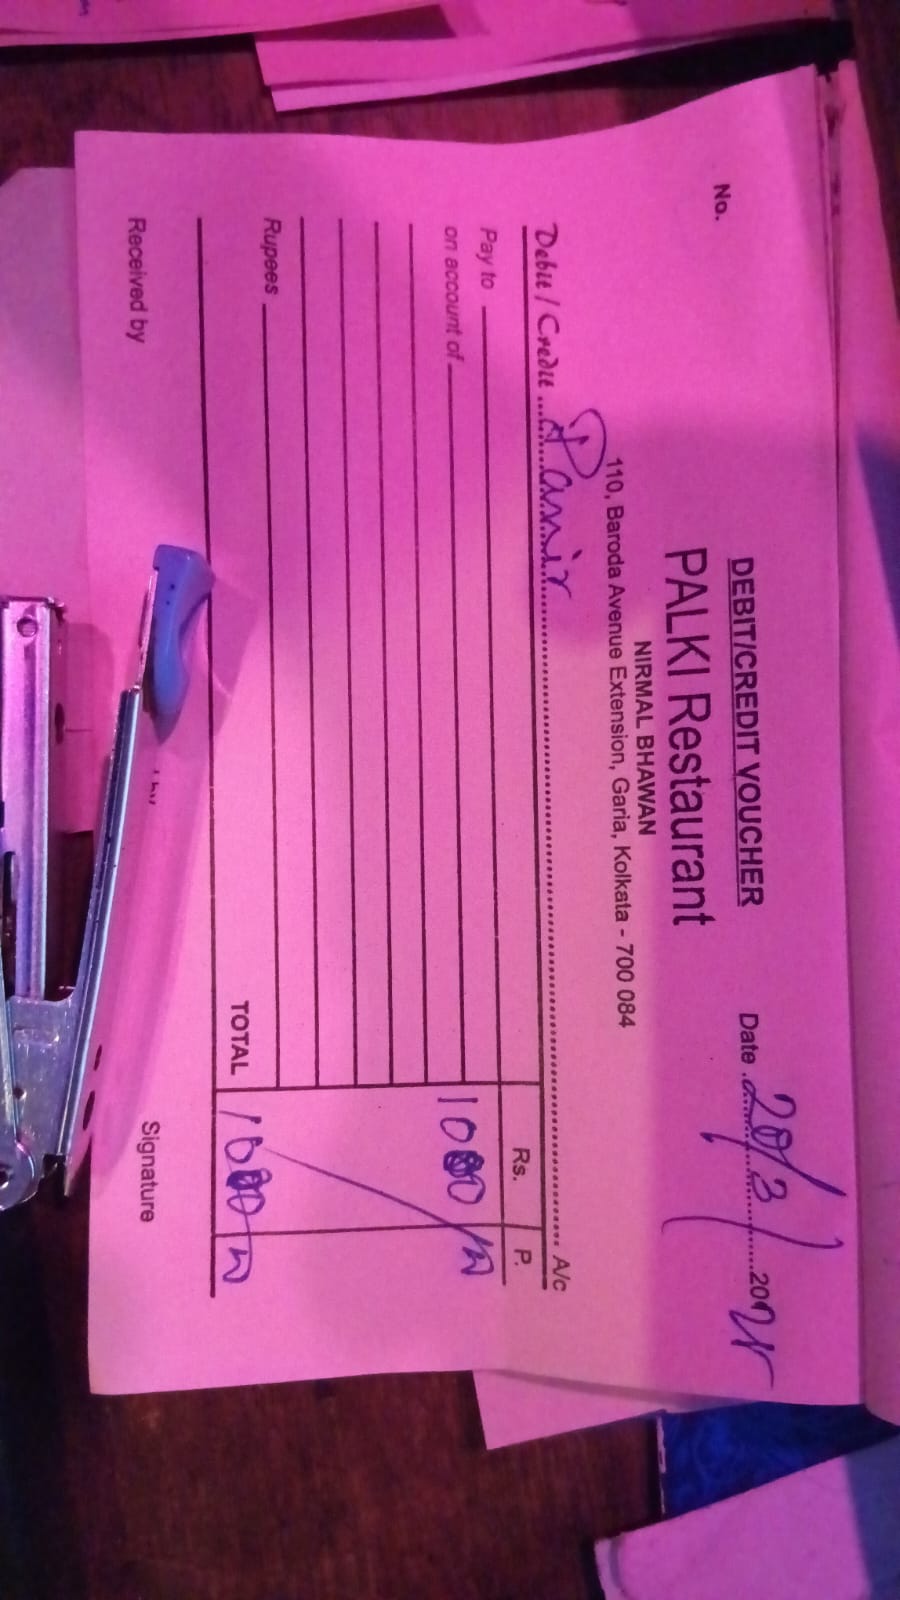 DEBIT/CREDIT VOUCHER
No.
Date 20/3/
PALKI Restaurant
NIRMAL BHAWAN
110, Baroda Avenue Extension, Garia, Kolkata - 700 084
Debit / Credit Panir A/c
Rs. P.
Pay to
on account of 1000/-
Rupees
TOTAL 1000/-
Received by Signature